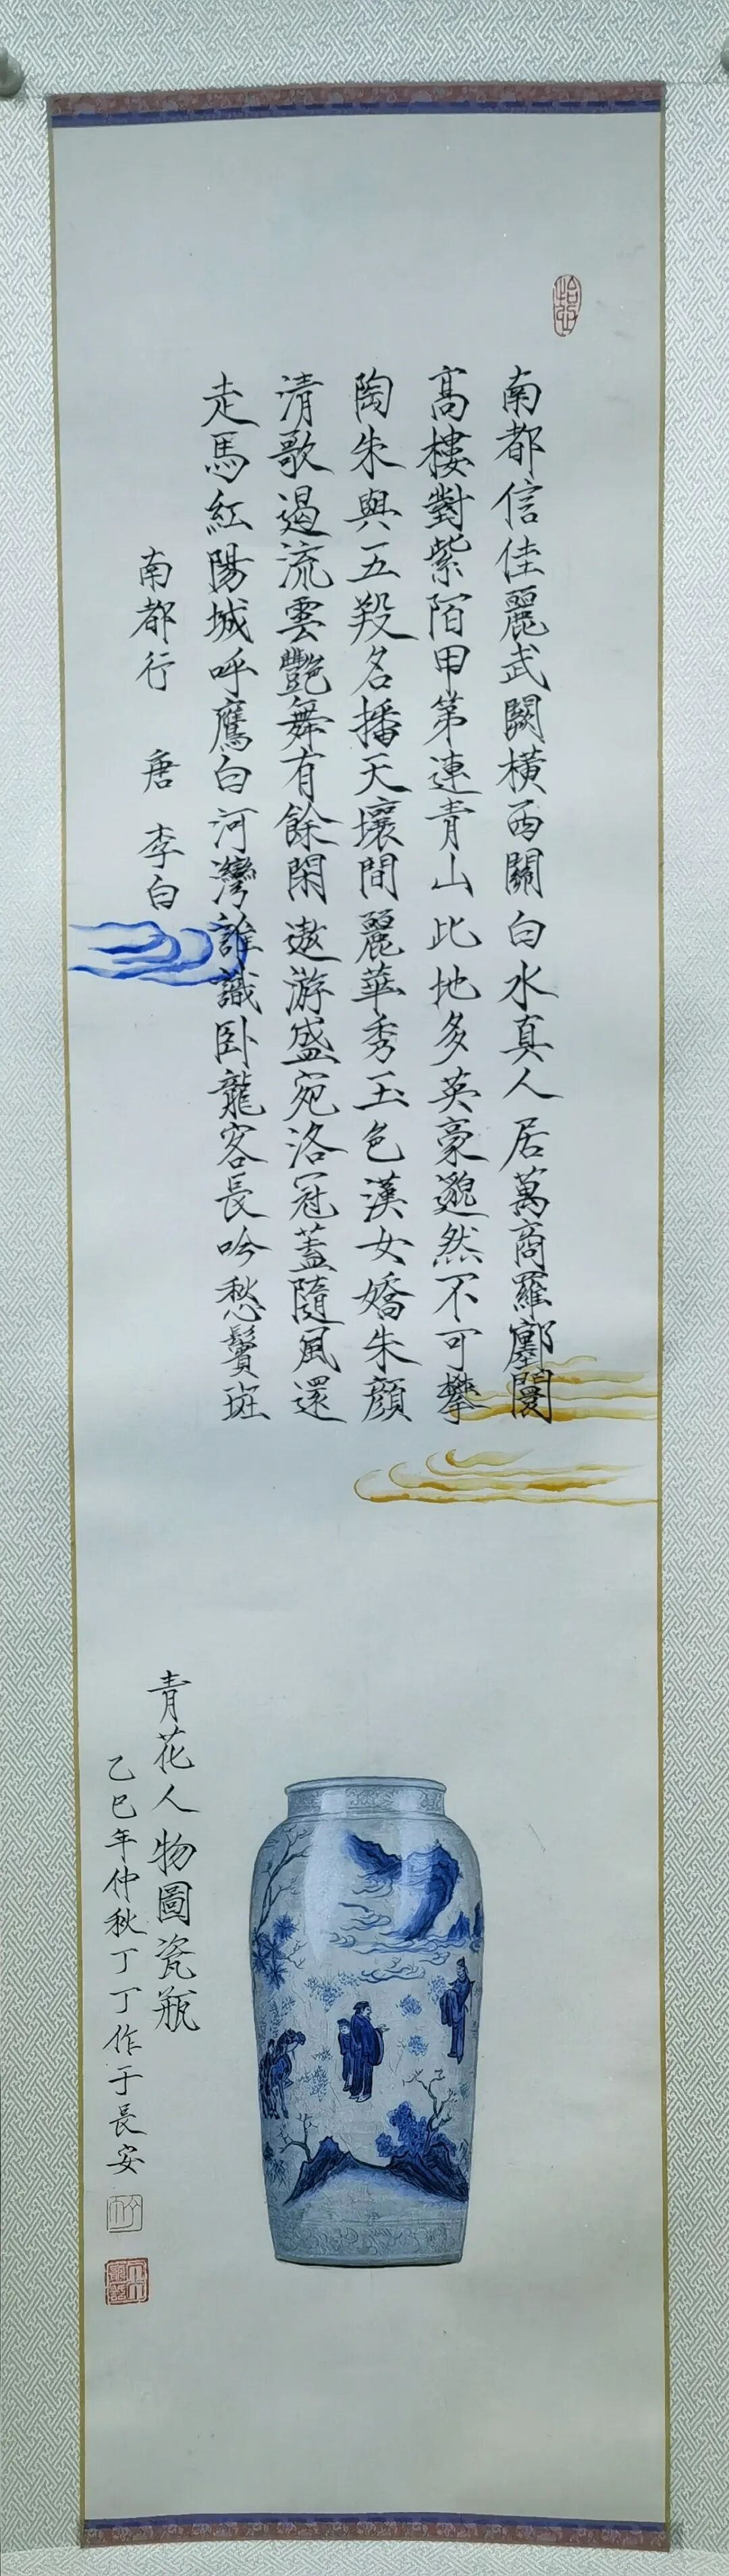 南都信佳麗武闕橫西關白水真人居萬商羅鄽闤
高樓對紫陌甲第連青山此地多英豪邈然不可攀
陶朱與五羖名播天壤間麗華秀玉色漢女嬌朱顏
清歌遏流雲豔舞有餘閑遨游盛宛洛冠蓋隨風還
走馬紅陽城呼鷹白河灣誰識卧龍客長吟愁鬢斑
南都行 唐 李白
青花人物圖瓷瓶
乙巳年仲秋丁丁作于長安